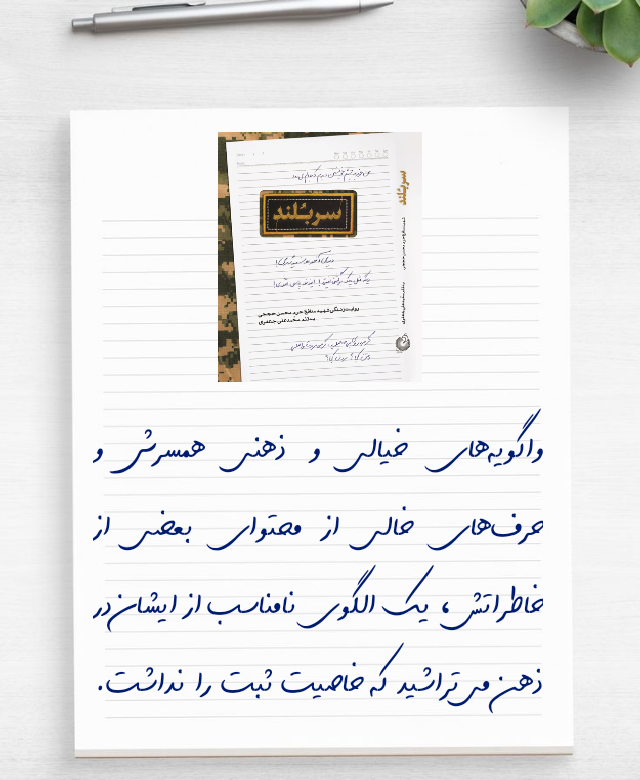 سربلند
سربلند
روایت زندگی شهید مدافع حرم محسن حججی
محمدعلی جعفری
واگویه‌های خیالی و ذهنی همسرش و
حرف‌های خالی از محتوای بعضی از
خاطراتش، یک الگوی نامناسب از ایشان در
ذهن می‌تراشید که خاصیت ثبت را نداشت.